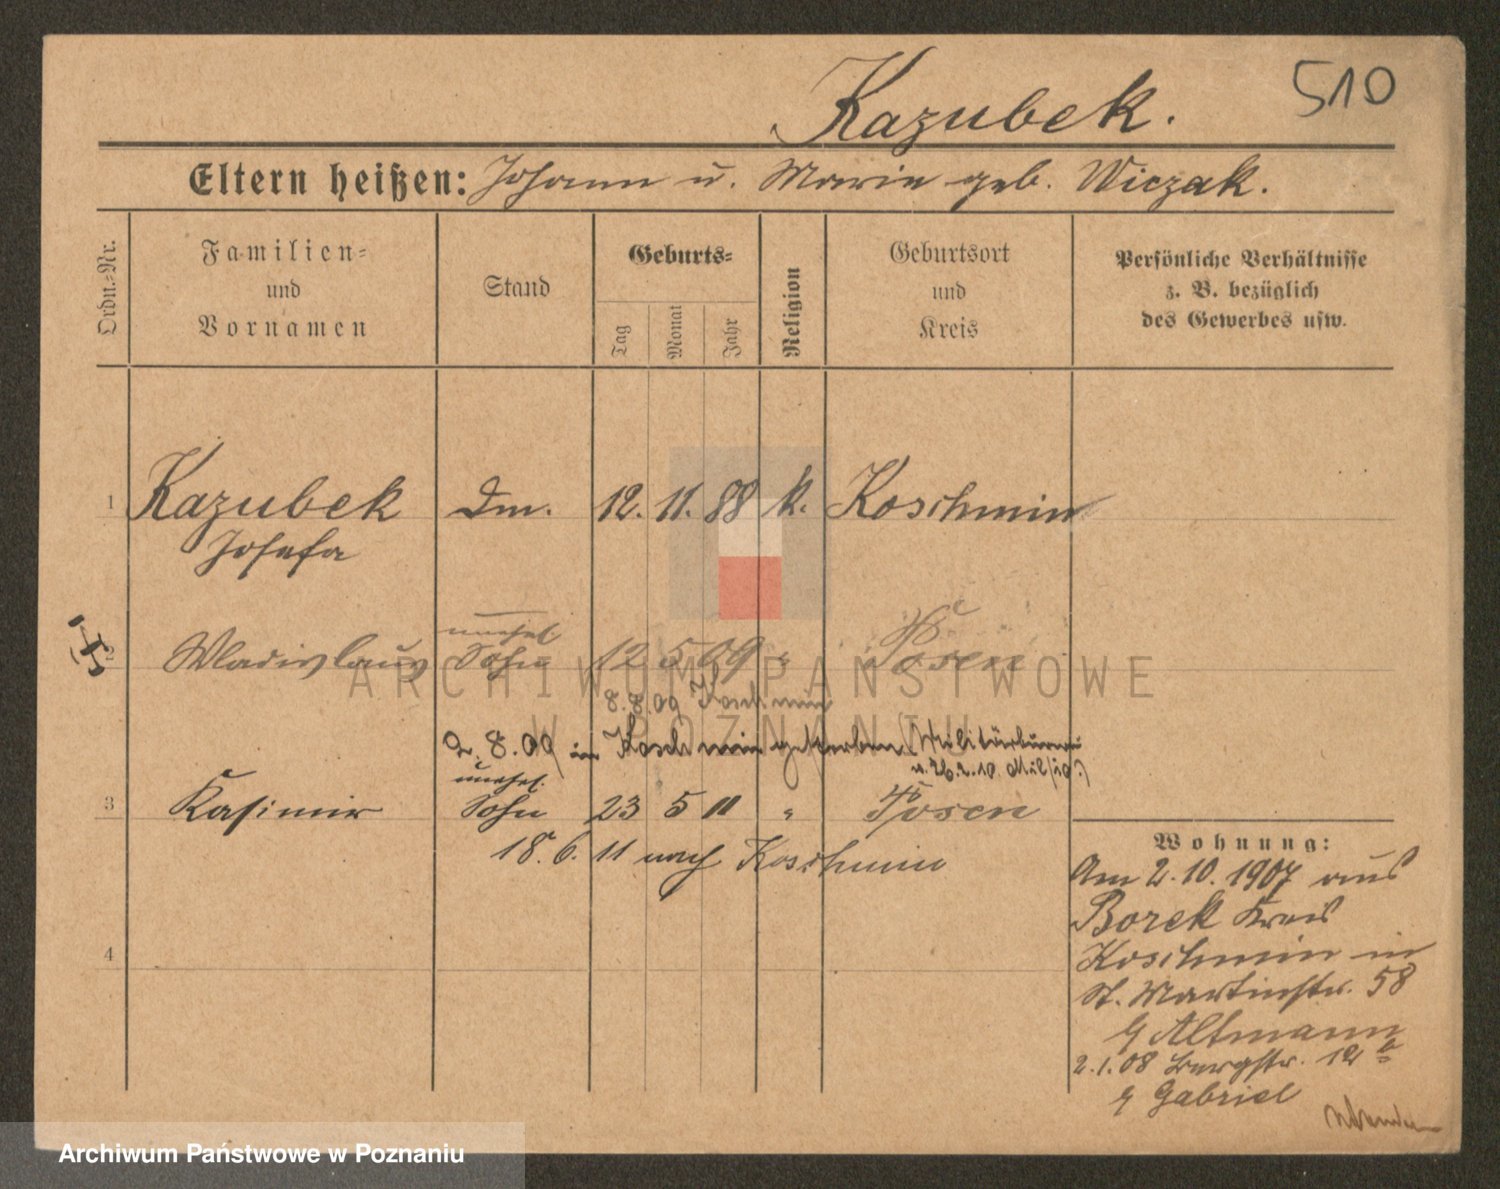 510
Kazubek.
Eltern heißen: Johann u. Marie geb. Wiczak.
Ordn.-Nr.
Familien- und Vornamen
Stand
Geburts-
Tag
Monat
Jahr
Religion
Geburtsort und Kreis
Persönliche Verhältnisse z. B. bezüglich des Gewerbes usw.
1 Kazubek Dm. 12. 11. 88 k. Koschmin
Josefa
unehel
2 Wladislaus Sohn 12 5 09 " Posen
8. 8. 09 Koschmin
2. 8. 09 in Koschmin gestorben (Militärbureau
v. 26.2.10 Mil/10.)
unehel.
3 Kasimir Sohn 23 5 11 " Posen
18. 6. 11 nach Koschmin
4
Wohnung:
Am 2. 10. 1907 aus
Borek Kreis
Koschmin in
St. Martinstr. 58
Altmann
2. 1. 08 Bergstr. 12
Gabriel
ARCHIWUM PAŃSTWOWE
W POZNANIU
Archiwum Państwowe w Poznaniu